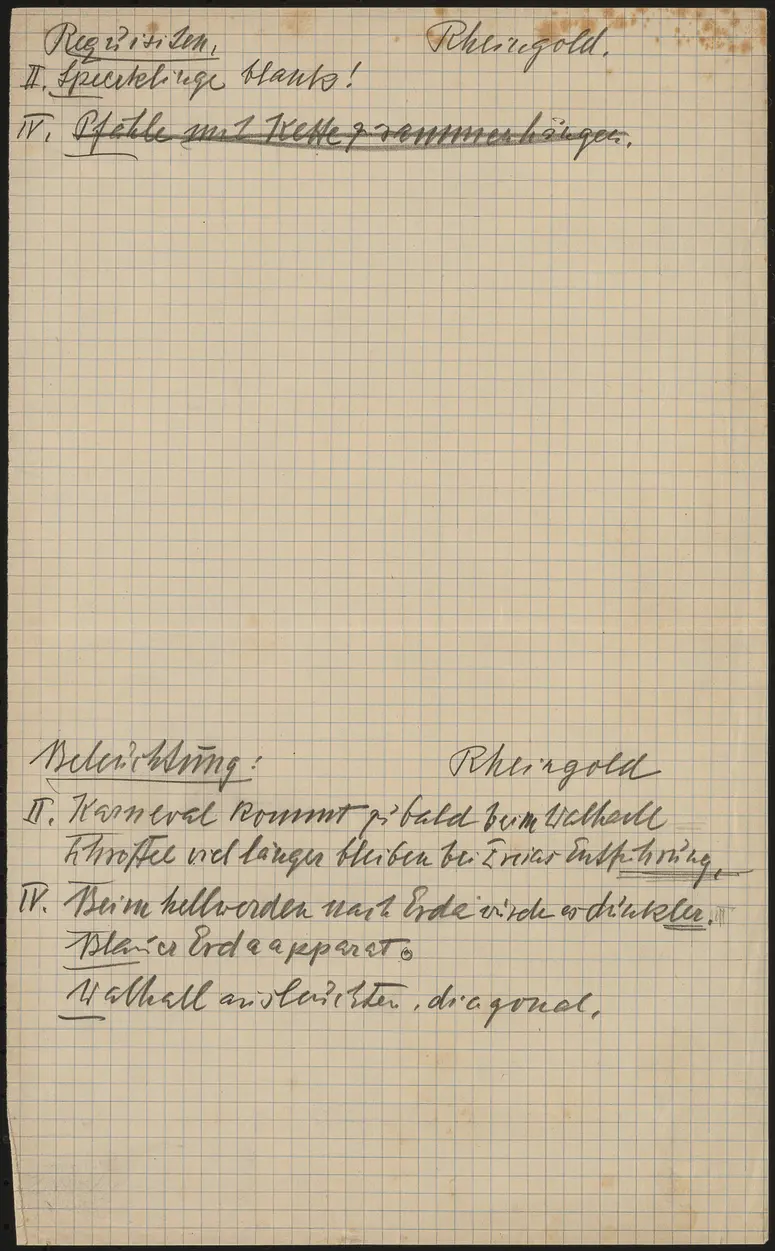 Requisiten. Rheingold.
II. Speerklinge blank!
IV. Pfähle mit Kette zusammenhängen.
Beleuchtung: Rheingold
II. Karneval kommt zu bald beim Walhall
viel länger bleiben bei Freias Entführung,
IV. Beim hellwerden nach Erda würde es dunkler.
Blauer Erdaapparat.
Walhall ausleuchten, diagonal.